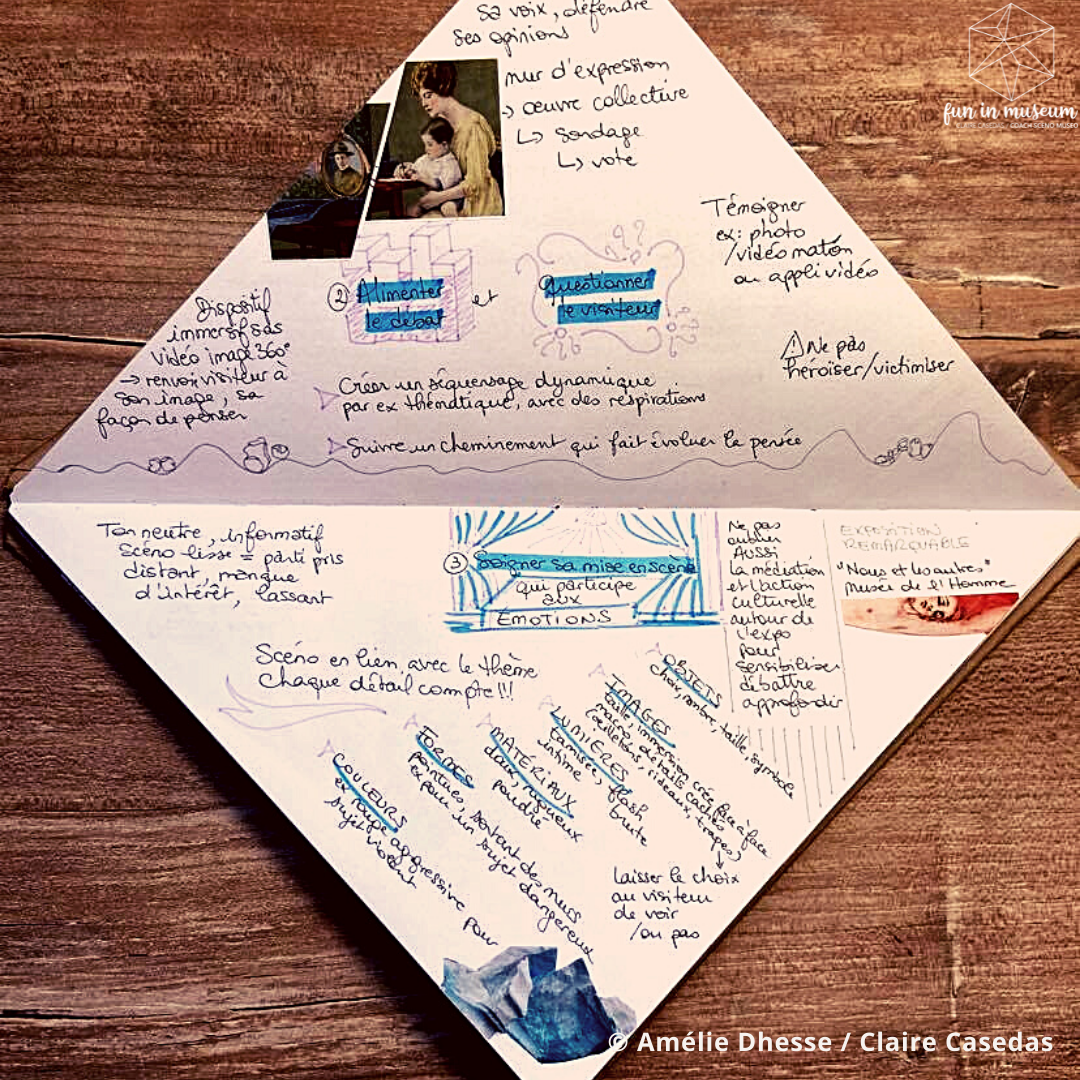 sa voix, défendre
ses opinions
mur d'expression
→ œuvre collective
↳ sondage
↳ vote
Témoigner
ex: photo
/vidéomaton
ou appli vidéo
② Alimenter
le débat
et
Questionner
le visiteur
Dispositif
immersif sas
vidéo image 360°
→ renvoi visiteur à
son image, sa
façon de penser
⚠ Ne pas
héroïser/victimiser
Créer un séquensage dynamique
par ex thématique, avec des respirations
Suivre un cheminement qui fait évoluer la pensée
Ton neutre, informatif
Scéno lisse = parti pris
distant, manque
d'intérêt, lassant
③ Soigner sa mise en scène
qui participe
aux
ÉMOTIONS
Ne pas
oublier
Aussi
la médiation
et l'action
culturelle
autour de
l'expo
pour
sensibiliser
débattre
approfondir
EXPOSITION
REMARQUABLE
"Nous et les autres"
musée de l'Homme
Scéno en lien avec le thème
Chaque détail compte !!!
COULEURS
ex rouge aggressive pour
sujet violent
FORMES
pointues, sortant des murs
ex pour un sujet dangereux
MATÉRIAUX
doux, rugueux
poudré
LUMIÈRES
tamisée, flash
intime brute
IMAGES
taille, immersion crée face à face
macro détails cachés
(œilletons, rideaux, trapes,
laisser le choix
au visiteur
de voir
/ou pas
OBJETS
choix, nombre, taille, symbole
fun in museum
© Amélie Dhesse / Claire Casedas